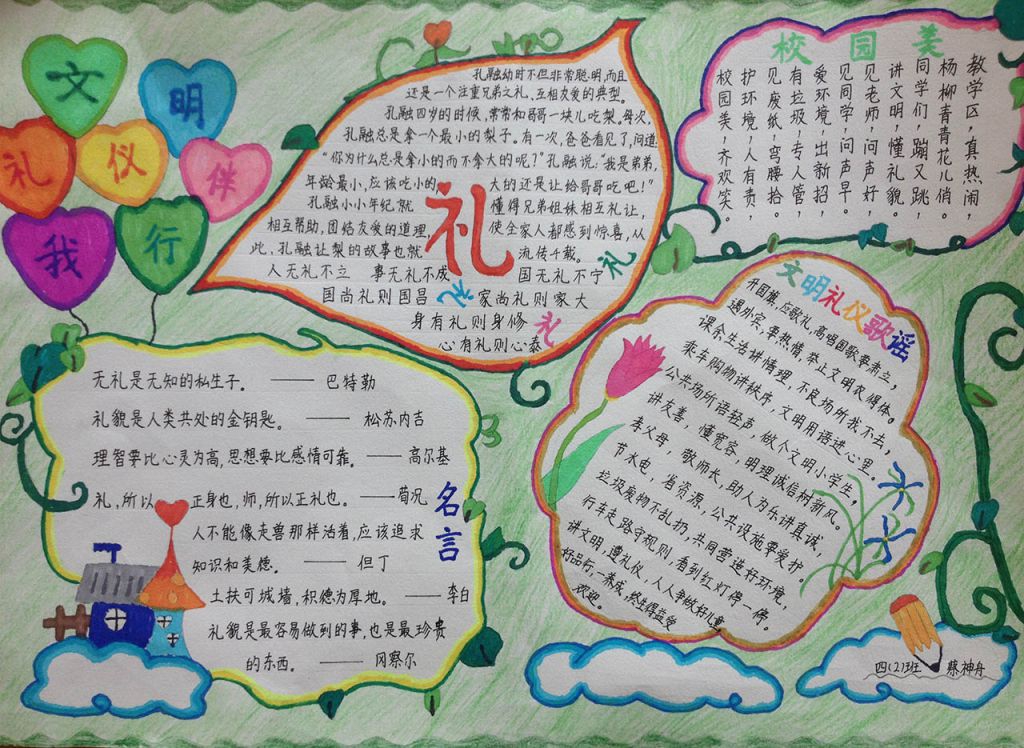 文明礼仪伴我行
孔融幼时不但非常聪明,而且
还是一个注重兄弟之礼、互相友爱的典型。
孔融四岁的时候,常常和哥哥一块儿吃梨。每次,
孔融总是拿一个最小的梨子。有一次,爸爸看见了,问道:
“你为什么总是拿小的而不拿大的呢?”孔融说:“我是弟弟,
年龄最小,应该吃小的,大的还是让给哥哥吃吧!”
孔融小小年纪就懂得兄弟姐妹相互礼让,
相互帮助,团结友爱的道理,使全家人都感到惊喜,从
此,孔融让梨的故事也就流传千载。
礼
人无礼不立 事无礼不成 国无礼不宁
国尚礼则国昌 家尚礼则家大
身有礼则身修
心有礼则心泰
礼
礼
礼
校园美
教学区,真热闹,
杨柳青青花儿俏。
同学们,蹦又跳,
讲文明,懂礼貌。
见老师,问声好
见同学,问声早。
爱环境,出新招,
有垃圾,专人管,
见废纸,弯腰拾。
护环境,人有责,
校园美,齐欢笑。
无礼是无知的私生子。——巴特勒
礼貌是人类共处的金钥匙。——松苏内吉
理智要比心灵为高,思想要比感情可靠。——高尔基
礼,所以正身也,师,所以正礼也。——荀况
人不能像走兽那样活着,应该追求
知识和美德。——但丁
土扶可城墙,积德为厚地。——李白
礼貌是最容易做到的事,也是最珍贵
的东西。——冈察尔
名言
文明礼仪歌谣
升国旗,应敬礼,高唱国歌要肃立,
遇外宾,要热情,举止文明衣得体。
课余生活讲情理,不良场所我不去,
乘车购物讲秩序,文明用语进心里。
公共场所语轻声,做个文明小学生。
讲友善,懂宽容,明理诚信树新风。
孝父母,敬师长,助人为乐讲真诚,
节水电,省资源,公共设施要爱护。
垃圾废物不乱扔,共同营造好环境,
行车走路守规则,看到红灯停一停。
讲文明,遵礼仪,人人争做好儿童
好品行,一养成,终生得益受
欢迎。
四(2)班 蔡神舟